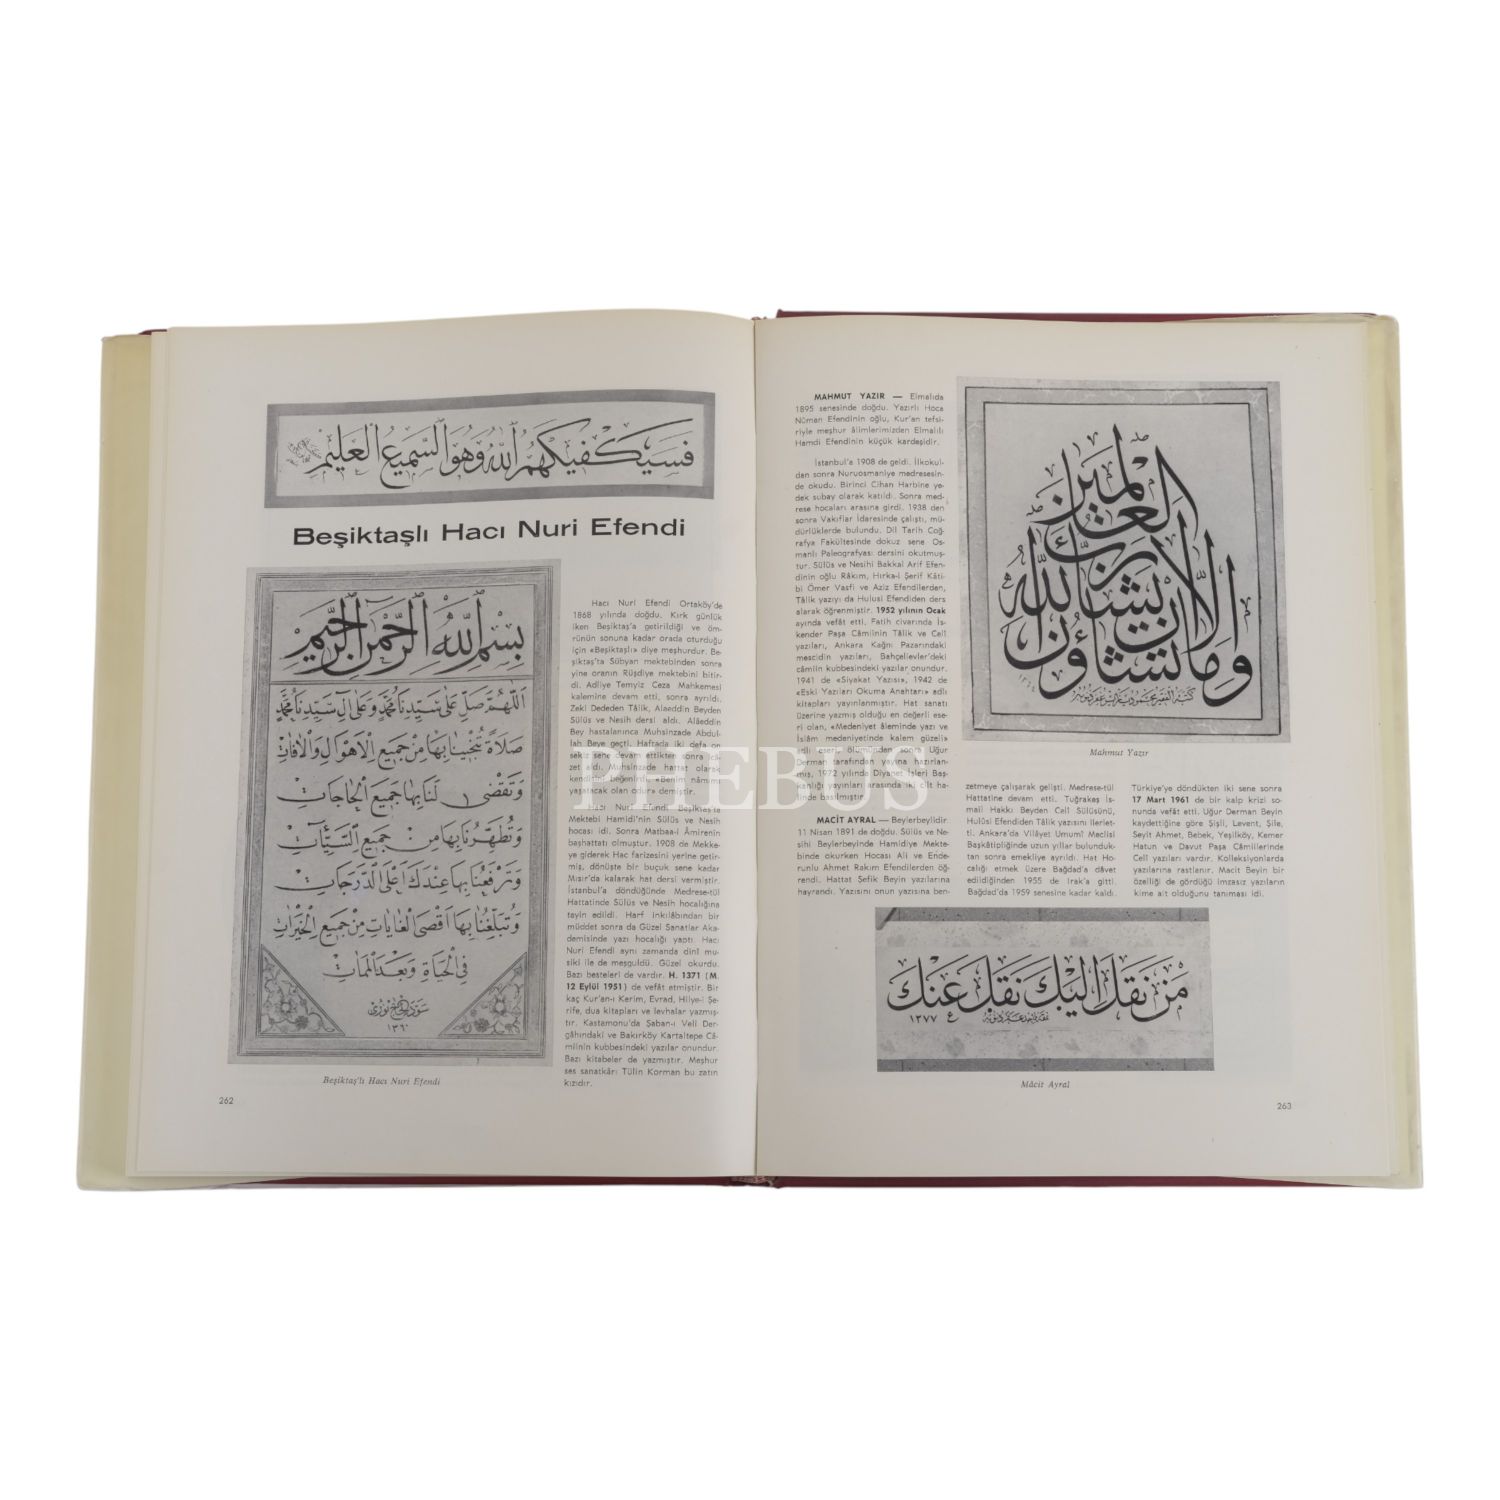 فسيكفيكهم الله وهو السميع العليم
Beşiktaşlı Hacı Nuri Efendi
بسم الله الرحمن الرحيم
اللهم صل على سيدنا محمد وعلى آل سيدنا محمد
صلاة تنجينا بها من جميع الاهوال والافات
وتقضى لنا بها جميع الحاجات
وتطهرنا بها من جميع السيئات
وترفعنا بها عندك اعلى الدرجات
وتبلغنا بها اقصى الغايات من جميع الخيرات
فى الحياة وبعد الممات
١٣٦٠
Beşiktaş'lı Hacı Nuri Efendi
262
Hacı Nuri Efendi Ortaköy'de
1868 yılında doğdu. Kırk günlük
iken Beşiktaş'a getirildiği ve öm-
rünün sonuna kadar orada oturduğu
için «Beşiktaşlı» diye meşhurdur. Be-
şiktaş'ta Sübyan mektebinden sonra
yine oranın Rüşdiye mektebini bitir-
di. Adliye Temyiz Ceza Mahkemesi
kalemine devam etti, sonra ayrıldı.
Zeki Dededen Tâlik, Alaeddin Beyden
Sülüs ve Nesih dersi aldı. Alâeddin
Bey hastalanınca Muhsinzade Abdul-
lah Beye geçti. Haftada iki defa on
sekiz sene devam ettikten sonra ica-
zet aldı. Muhsinzade hattat olarak
kendisini beğenirdi. «Benim nâmımı
yaşatacak olan odur» demiştir.
Hacı Nuri Efendi Beşiktaş'ta
Mektebi Hamidî'nin Sülüs ve Nesih
hocası idi. Sonra Matbaa-i Âmirenin
başhattatı olmuştur. 1908 de Mekke-
ye giderek Hac farizesini yerine getir-
miş, dönüşte bir buçuk sene kadar
Mısır'da kalarak hat dersi vermiştir.
İstanbul'a döndüğünde Medrese-tül
Hattatinde Sülüs ve Nesih hocalığına
tayin edildi. Harf inkılâbından bir
müddet sonra da Güzel Sanatlar Aka-
demisinde yazı hocalığı yaptı. Hacı
Nuri Efendi aynı zamanda dinî mu-
siki ile de meşguldü. Güzel okurdu.
Bazı besteleri de vardır. H. 1371 (M.
12 Eylül 1951) de vefat etmiştir. Bir
kaç Kur'an-ı Kerim, Evrad, Hilye-i Şe-
rife, dua kitapları ve levhalar yazmış-
tır. Kastamonu'da Şaban-ı Veli Der-
gâhındaki ve Bakırköy Kartaltepe Câ-
miinin kubbesindeki yazılar onundur.
Bazı kitabeler de yazmıştır. Meşhur
ses sanatkârı Tülin Korman bu zatın
kızıdır.
MAHMUT YAZIR — Elmalıda
1895 senesinde doğdu. Yazırlı Hoca
Nûman Efendinin oğlu, Kur'an tefsi-
riyle meşhur âlimlerimizden Elmalılı
Hamdi Efendinin küçük kardeşidir.
İstanbul'a 1908 de geldi. İlkokul-
dan sonra Nuruosmaniye medresesin-
de okudu. Birinci Cihan Harbine ye-
dek subay olarak katıldı. Sonra med-
rese hocaları arasına girdi. 1938 den
sonra Vakıflar İdaresinde çalıştı, mü-
dürlüklerde bulundu. Dil Tarih Coğ-
rafya Fakültesinde dokuz sene Os-
manlı Paleografyası dersini okutmuş-
tur. Sülüs ve Nesihi Bakkal Arif Efen-
dinin oğlu Râkım, Hırka-i Şerif Kâti-
bi Ömer Vasfi ve Aziz Efendilerden,
Tâlik yazıyı da Hulusi Efendiden ders
alarak öğrenmiştir. 1952 yılının Ocak
ayında vefât etti. Fatih civarında İs-
kender Paşa Câmiinin Tâlik ve Celî
yazıları, Ankara Kağnı Pazarındaki
mescidin yazıları, Bahçelievler'deki
câmiin kubbesindeki yazılar onundur.
1941 de «Siyakat Yazısı», 1942 de
«Eski Yazıları Okuma Anahtarı» adlı
kitapları yayınlanmıştır. Hat sanatı
üzerine yazmış olduğu en değerli ese-
ri olan, «Medeniyet âleminde yazı ve
İslâm medeniyetinde kalem güzeli»
adlı eseri, ölümünden sonra Uğur
Derman tarafından yayına hazırlan-
mış, 1972 yılında Diyanet İşleri Baş-
kanlığı yayınları arasında iki cilt ha-
linde basılmıştır.
وما تشاؤن الا ان يشاء الله رب العالمين
١٣٦٤
Mahmut Yazır
MACİT AYRAL — Beylerbeylidir.
11 Nisan 1891 de doğdu. Sülüs ve Ne-
sihi Beylerbeyinde Hamidiye Mekte-
binde okurken Hocası Ali ve Ende-
runlu Ahmet Rakım Efendilerden öğ-
rendi. Hattat Şefik Beyin yazılarına
hayrandı. Yazısını onun yazısına ben-
zetmeye çalışarak gelişti. Medrese-tül
Hattatine devam etti. Tuğrakeş İs-
mail Hakkı Beyden Celî Sülüsünü,
Hulûsi Efendiden Tâlik yazısını ilerlet-
ti. Ankara'da Vilâyet Umumî Meclisi
Başkâtipliğinde uzun yıllar bulunduk-
tan sonra emekliye ayrıldı. Hat Ho-
calığı etmek üzere Bağdad'a dâvet
edildiğinden 1955 de Irak'a gitti.
Bağdad'da 1959 senesine kadar kaldı.
Türkiye'ye döndükten iki sene sonra
17 Mart 1961 de bir kalp krizi so-
nunda vefât etti. Uğur Derman Beyin
kaydettiğine göre Şişli, Levent, Şile,
Seyit Ahmet, Bebek, Yeşilköy, Kemer
Hatun ve Davut Paşa Câmilerinde
Celî yazıları vardır. Kolleksiyonlarda
yazılarına rastlanır. Macit Beyin bir
özelliği de gördüğü imzasız yazıların
kime ait olduğunu tanıması idi.
من نقل اليك نقل عنك
١٣٧٧
Mâcit Ayral
263
PHEBUS